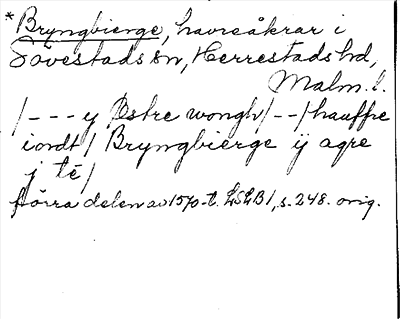 *Bryngbierge, havreåkrar i
Sövestads sn, Herrestads hd,
Malm. l.
/--- y Østre wongh/--/hauffre
iordt/ Bryngbierge ij agre
j té/
förra delen av 1570-t. LSLB1, s. 248. orig.